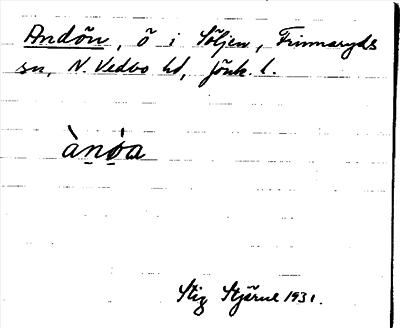 Andön, ö i Söljen, Frinnaryds
sn, N. Vedbo hd, Jönk. l.
ànöa
Stig Stjärne 1931.